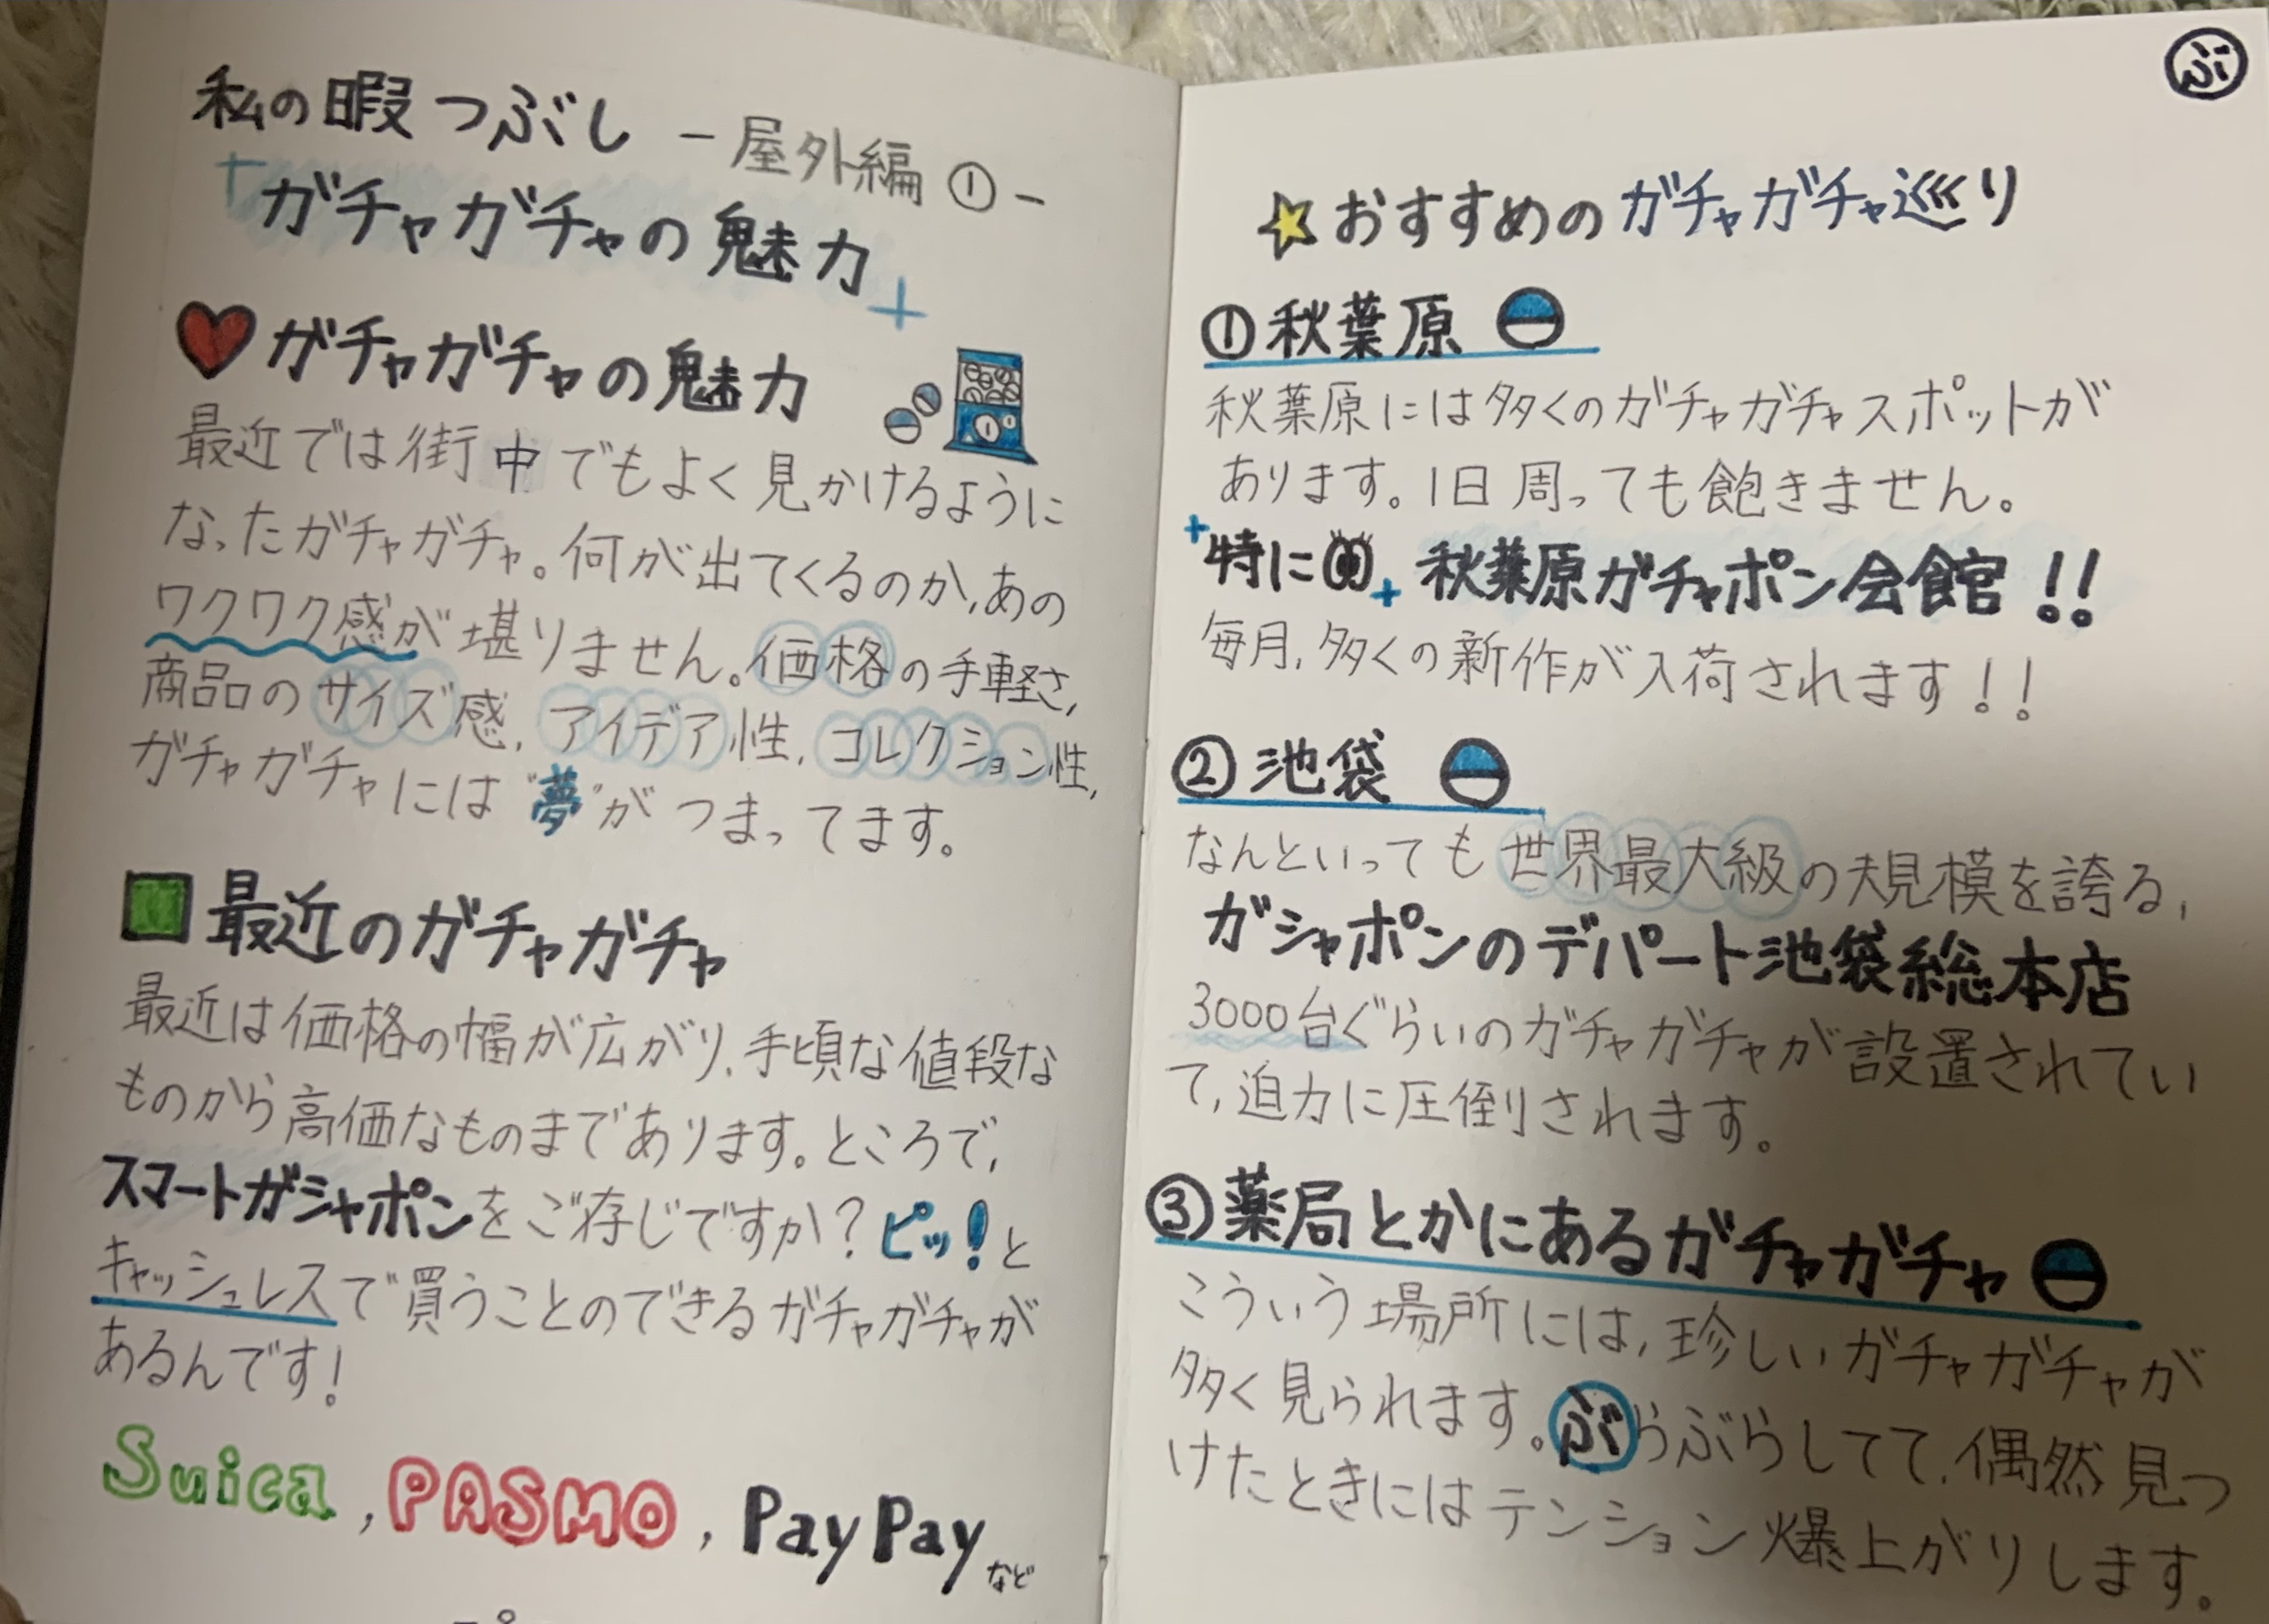 私の暇つぶし -屋外編①-
ガチャガチャの魅力
ガチャガチャの魅力
最近では街中でもよく見かけるように
なったガチャガチャ。何が出てくるのか、あの
ワクワク感が堪りません。価格の手軽さ、
商品のサイズ感、アイデア性、コレクション性、
ガチャガチャには"夢"がつまってます。
最近のガチャガチャ
最近は価格の幅が広がり、手頃な値段な
ものから高価なものまであります。ところで、
スマートガシャポンをご存じですか?ピッ!と
キャッシュレスで買うことのできるガチャガチャが
あるんです!
Suica, PASMO, PayPayなど
ぶ
☆おすすめのガチャガチャ巡り
①秋葉原
秋葉原には多くのガチャガチャスポットが
あります。1日周っても飽きません。
特に 秋葉原ガチャポン会館!!
毎月、多くの新作が入荷されます!!
②池袋
なんといっても世界最大級の規模を誇る、
ガシャポンのデパート池袋総本店
3000台ぐらいのガチャガチャが設置されてい
て、迫力に圧倒されます。
③薬局とかにあるガチャガチャ
こういう場所には、珍しいガチャガチャが
多く見られます。ぶらぶらしてて、偶然見つ
けたときにはテンション爆上がりします。